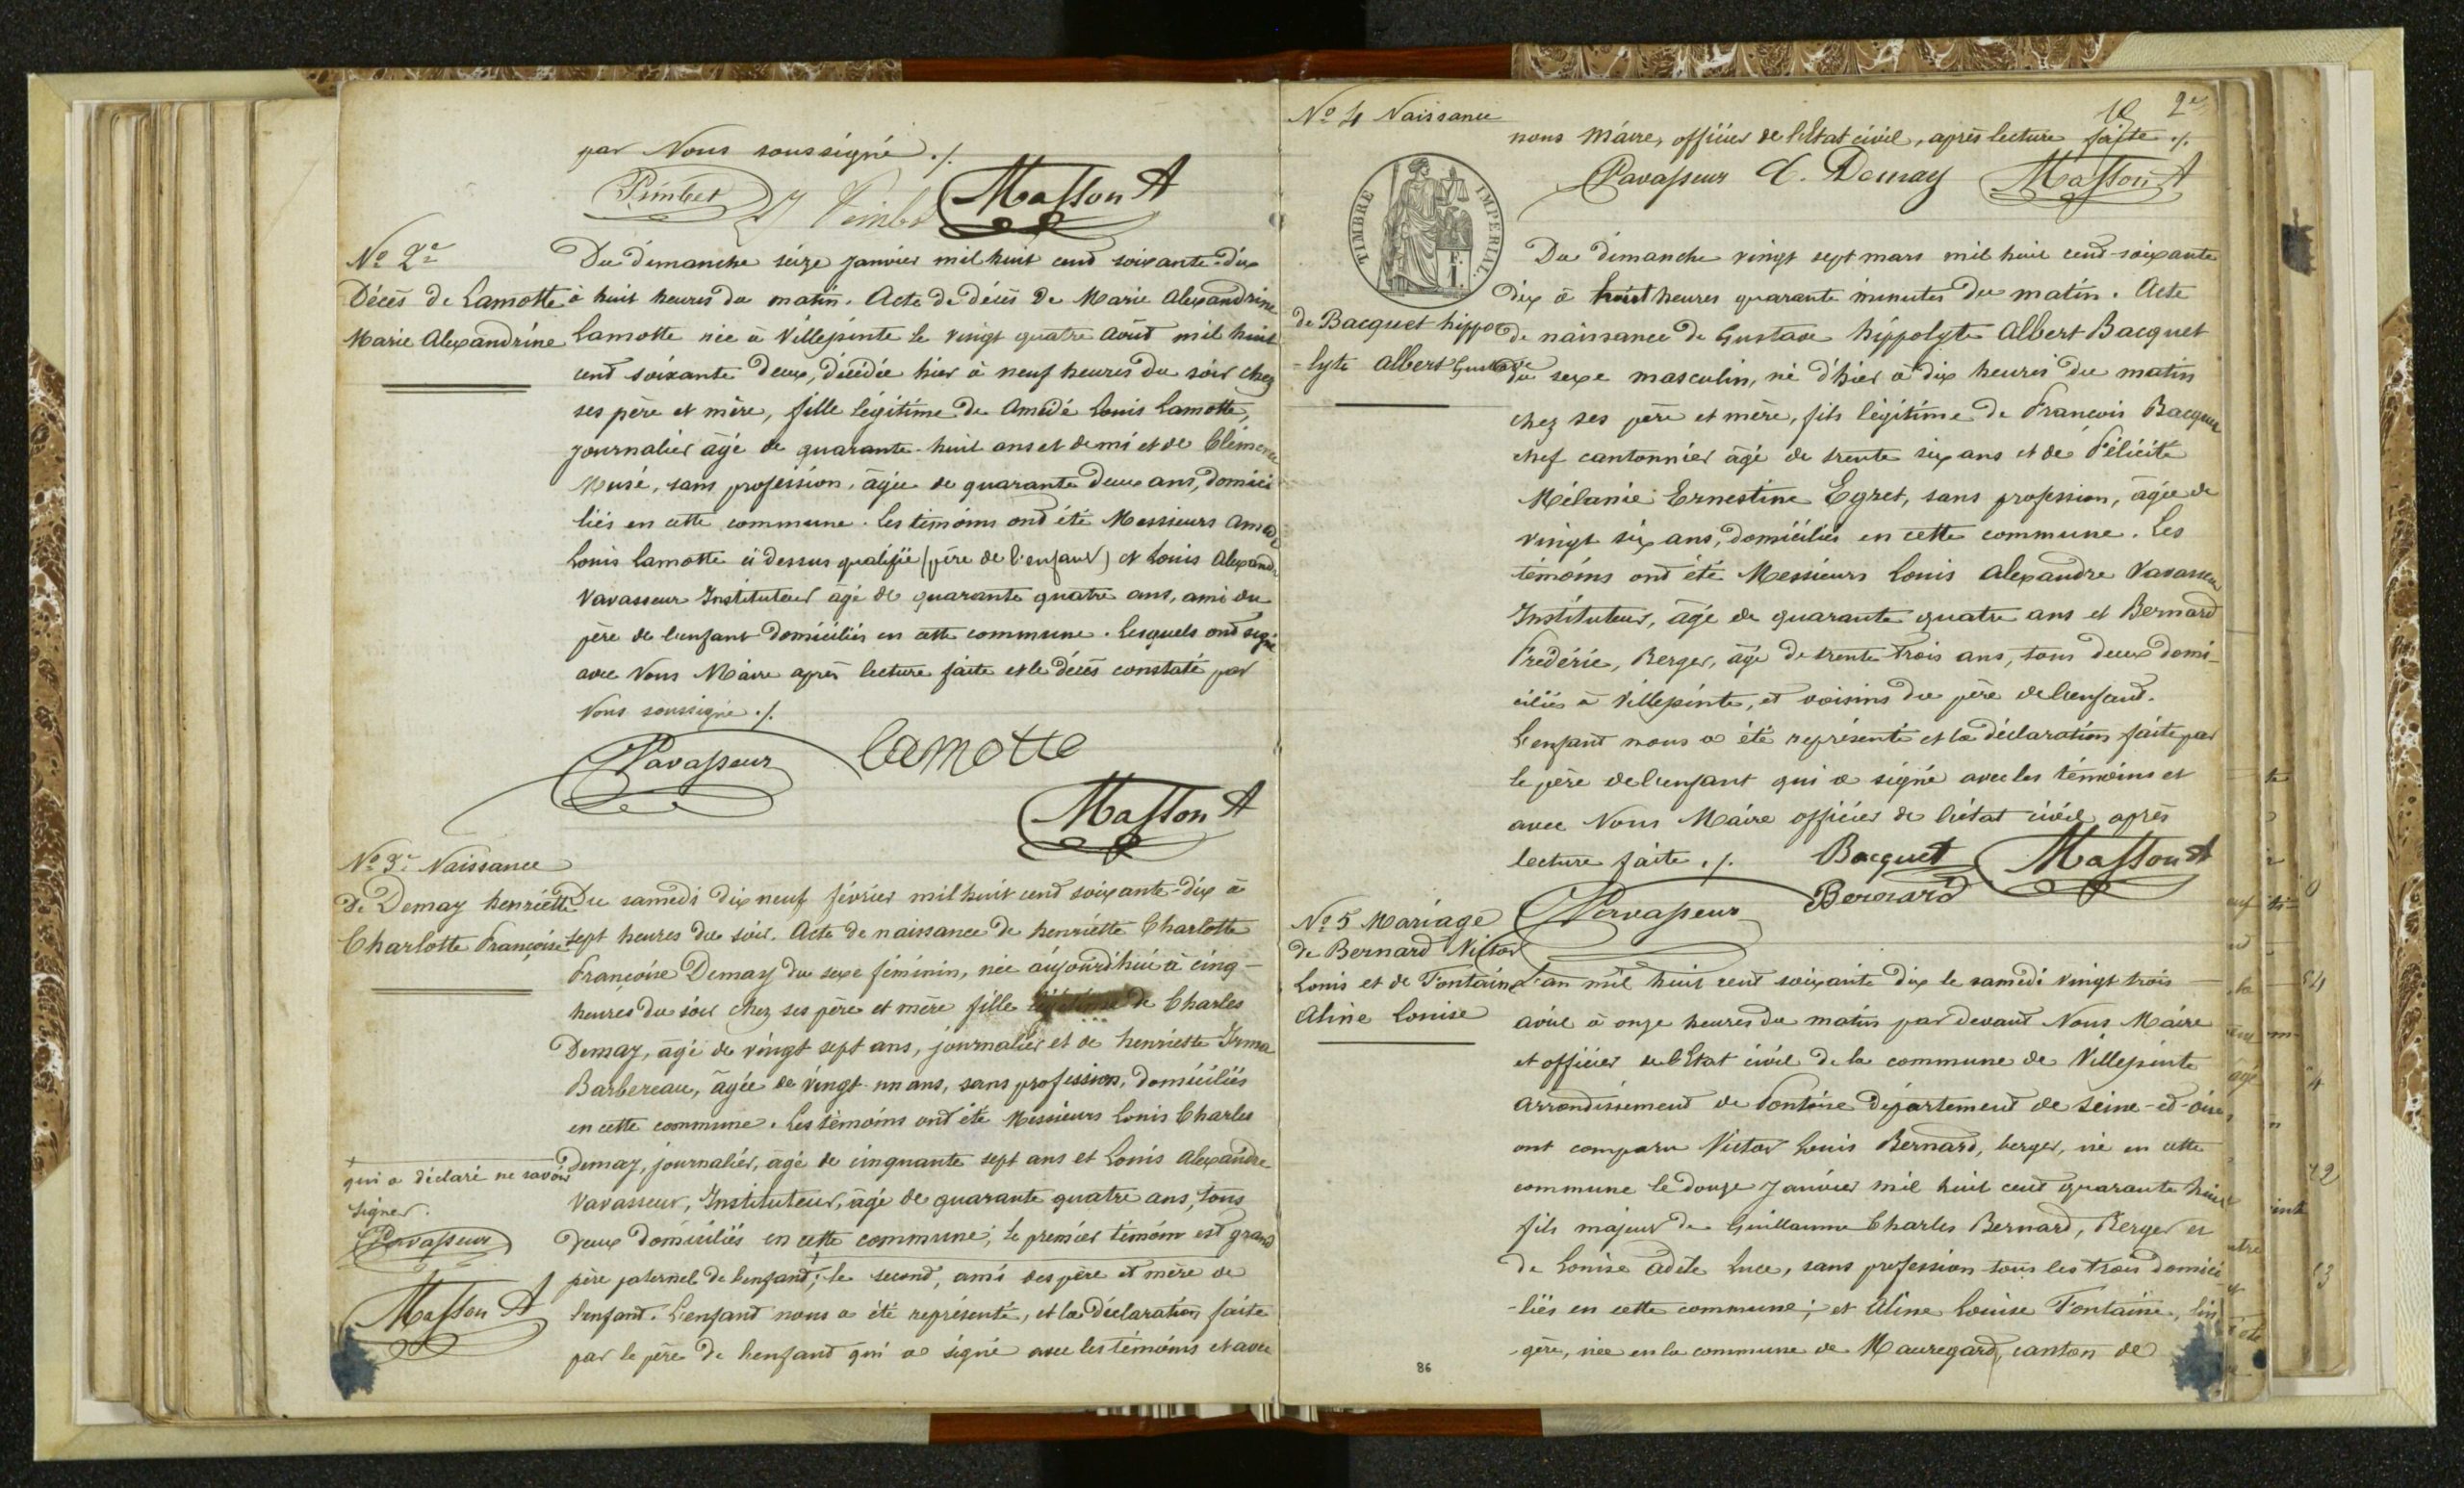 par Nous soussigné ./.
Pimbet Pimbet Masson A
No 2e
Décès de Lamotte
Marie Alexandrine
Du dimanche seize janvier mil huit cent soixante-dix
à huit heures du matin. Acte de décès de Marie Alexandrine
Lamotte née à Villepinte le vingt quatre août mil huit
cent soixante deux, décédée hier à neuf heures du soir chez
ses père et mère, fille légitime de Amédé Louis Lamotte,
journalier âgé de quarante-huit ans et demi et de Clémence
Musé, sans profession, âgée de quarante deux ans, domici
liés en cette commune. Les témoins ont été Messieurs Amédé
Louis Lamotte ci dessus qualifié (père de l'enfant) et Louis Alexandre
Vavasseur Instituteur agé de quarante quatre ans, ami du
père de l'enfant domiciliés en cette commune. Lesquels ont signé
avec Nous Maire après lecture faite et le décès constaté par
Nous soussigné ./.
Vavasseur Lamotte
Masson A
No 3e Naissance
De Demay henriette
Charlotte Françoise
Du samedi dix neuf février mil huit cent soixante-dix à
sept heures du soir. Acte de naissance de henriette Charlotte
Françoise Demay du sexe féminin, née aujourd'hui à cinq-
heures du soir chez ses père et mère fille légitime de Charles
Demay, âgé de vingt sept ans, journalier et de henriette Irma
Barbereau, âgée de vingt-un ans, sans profession, domiciliés
en cette commune. Les témoins ont été Messieurs Louis Charles
Demay, journalier, âgé de cinquante sept ans et Louis Alexandre
Vavasseur, Instituteur, âgé de quarante quatre ans, tous
deux domiciliés en cette commune; le premier témoin est grand
père paternel de l'enfant; + le second, ami des père et mère de
l'enfant. L'enfant nous a été représenté, et la déclaration faite
par le père de l'enfant qui a signé avec les témoins et avec
+
qui a déclaré ne savoir
signer.
Vavasseur
Masson A
2e
No 4 Naissance
nous Maire, officier de l'Etat civil, après lecture faite ./.
Vavasseur C. Demay Masson A
TIMBRE IMPERIAL
de Bacquet hippo
-lyte Albert Gustave
Du dimanche vingt sept mars mil huit cent-soixante
dix à huit heures quarante minutes du matin. Acte
de naissance de Gustave hippolyte Albert Bacquet
du sexe masculin, né d'hier à dix heures du matin
chez ses père et mère, fils légitime de François Bacquet
chef cantonnier âgé de trente six ans et de Félicité
Mélanie Ernestine Egret, sans profession, âgée de
vingt six ans, domiciliés en cette commune. Les
témoins ont été Messieurs Louis Alexandre Vavasseur
Instituteur, âgé de quarante quatre ans et Bernard
Frédéric, Berger, âgé de trente trois ans, tous deux domi-
ciliés à Villepinte, et voisins du père de l'enfant.
L'enfant nous a été représenté et la déclaration faite par
le père de l'enfant qui a signé avec les témoins et
avec Nous Maire officier de l'état civil après
lecture faite ./. Bacquet Masson A
Vavasseur Bernard
No 5 Mariage
de Bernard Victor
Louis et de Fontaine
Aline Louise
L'an mil huit cent soixante dix le samedi vingt trois
avril à onze heures du matin par devant Nous Maire
et officier de l'Etat civil de la commune de Villepinte
arrondissement de Pontoise département de Seine-et-oise
ont comparu Victor Louis Bernard, berger, né en cette
commune le douze janvier mil huit cent quarante huit
fils majeur de Guillaume Charles Bernard, Berger et
de Louise Adèle Luce, sans profession tous les trois domici
-liés en cette commune; et Aline Louise Fontaine, lin
-gère, née en la commune de Mauregard, canton de
86